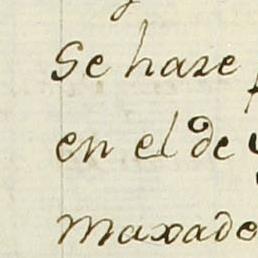 Se haze
en el de
maxade